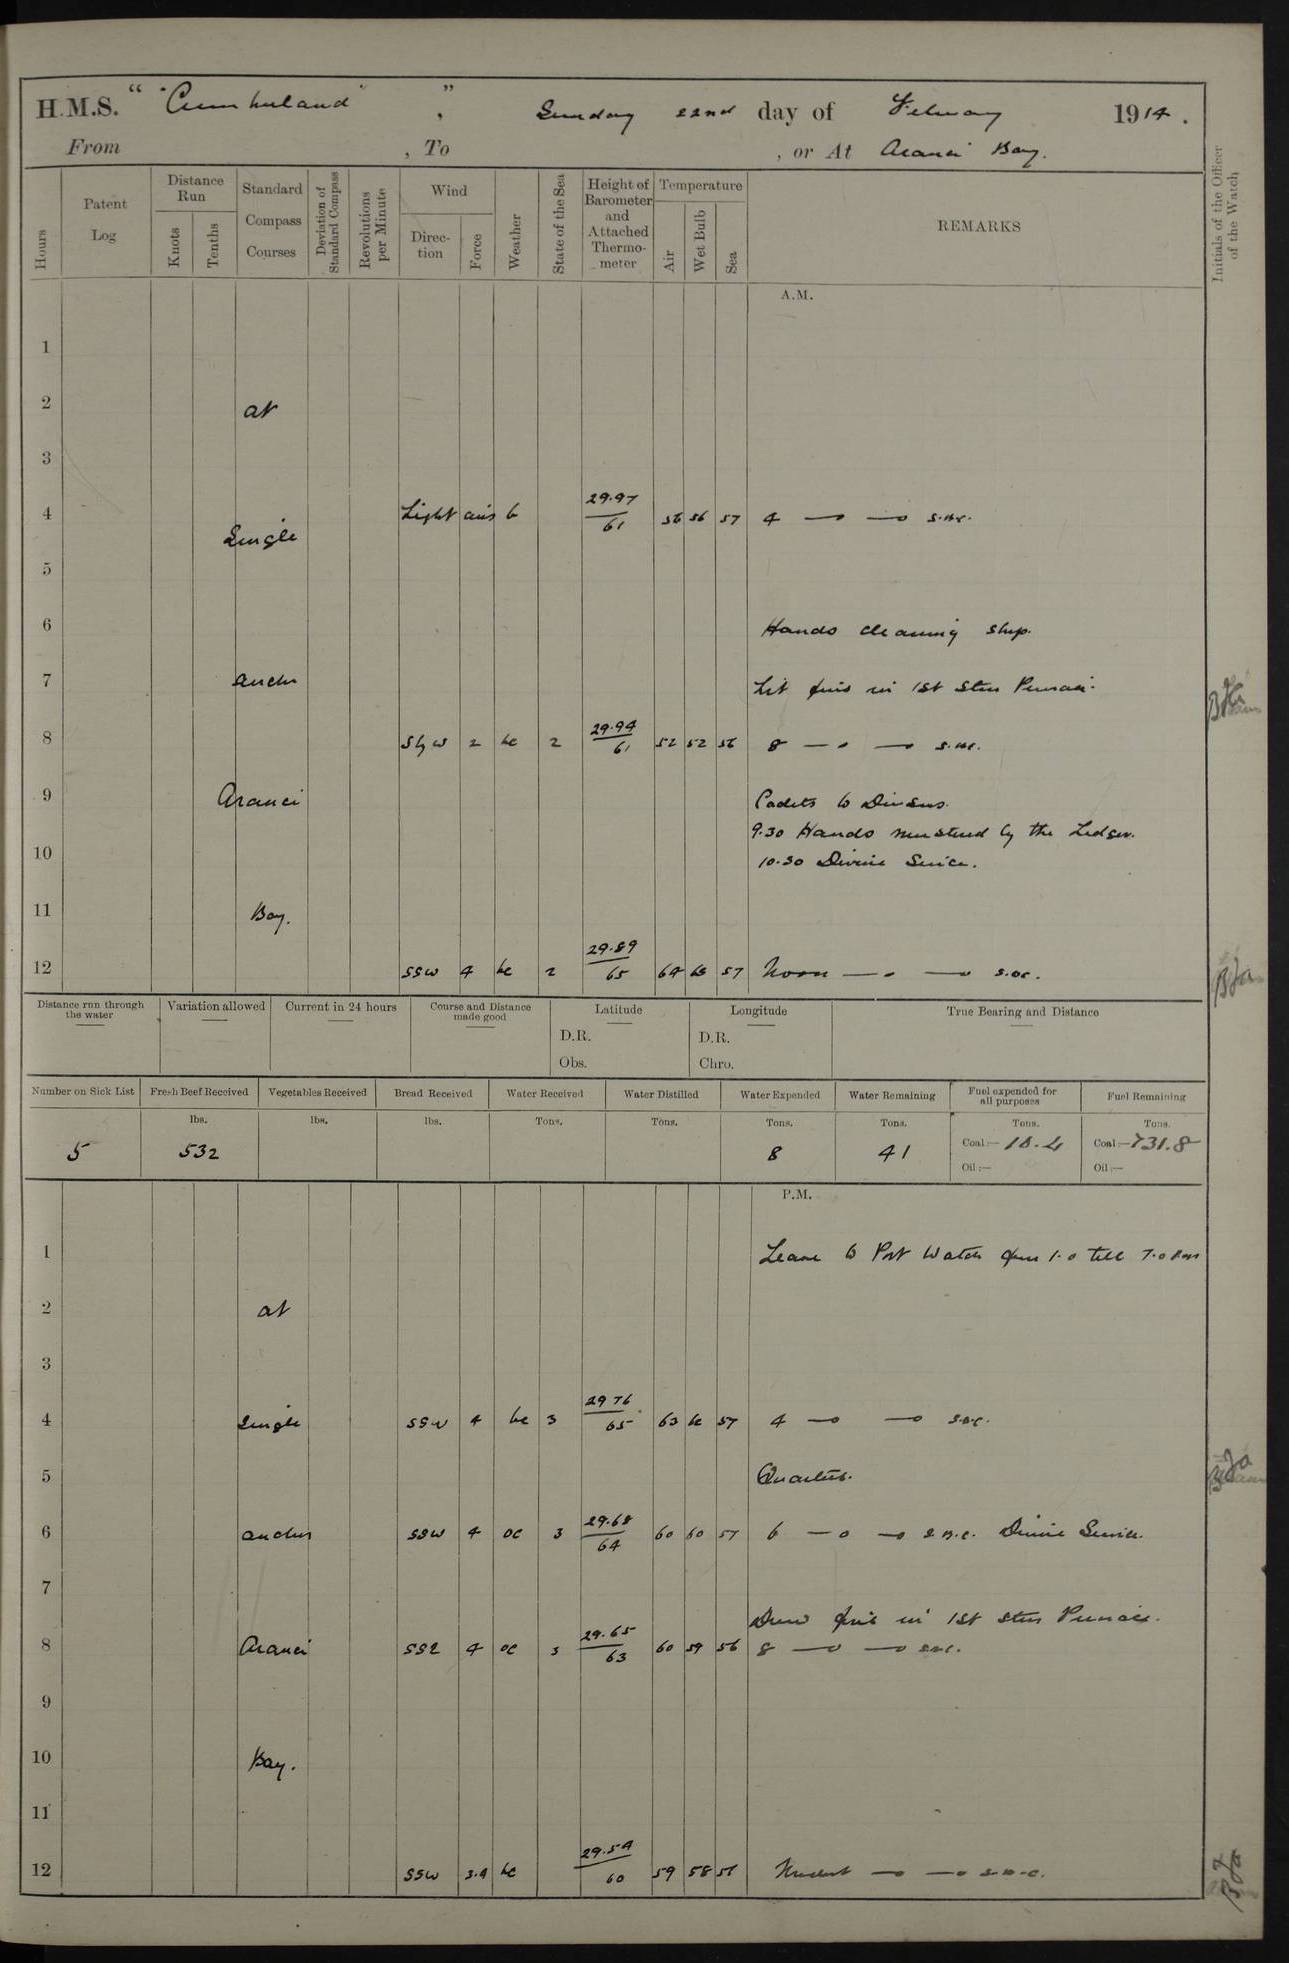 H.M.S. “ "Cumberland" ” , Sunday 22nd day of February 1914.
From , To , or At Aranci Bay.
Hours
Patent Log
Distance Run
Knots
Tenths
Standard Compass Courses
Deviation of Standard Compass
Revolutions per Minute
Wind
Direc-tion
Force
Weather
State of the Sea
Height of Barometer and Attached Thermo-meter
Temperature
Air
Wet Bulb
Sea
REMARKS
Initials of the Officer of the Watch
A.M.
1
2 at
3
4 Light airs b 29.97/61 56 56 57 4 —o —o S.B.C.
Single
5
6 Hands cleaning ship.
7 anchr Lit fires in 1st Stm Pinnace.
8 S by W 2 bc 2 29.94/61 52 52 56 8 —o —o S.B.C.
9 Aranci Cadets to Divisions.
9.30 Hands mustered by the Ledger.
10 10.30 Divine Service.
11 Bay.
12 SSW 4 bc 2 29.89/65 64 63 57 Noon —o —o S.B.C.
Distance run through the water
Variation allowed
Current in 24 hours
Course and Distance made good
Latitude
D.R.
Obs.
Longitude
D.R.
Chro.
True Bearing and Distance
Number on Sick List Fresh Beef Received Vegetables Received Bread Received Water Received Water Distilled Water Expended Water Remaining Fuel expended for all purposes Fuel Remaining
lbs. lbs. lbs. Tons. Tons. Tons. Tons. Tons. Tons.
5 532 8 41 Coal:— 18.4 Coal:— 731.8
Oil:— Oil:—
P.M.
1 Leave to Port Watch from 1.0 till 7.0 pm
2 at
3
4 Single SSW 4 bc 3 29 76/65 63 57 4 —o —o S.B.C.
5 Quarters.
6 anchor SSW 4 oc 3 29.68/64 60 60 57 6 —o —o S.B.C. Divine Service.
7
Drew fires in 1st Stm Pinnace.
8 Aranci SSE 4 oc 3 29.65/63 60 59 56 8 —o —o S.B.C.
9
10 Bay.
11
12 SSW 3.4 bc 29.54/60 59 58 56 Midnt —o —o S.B.C.